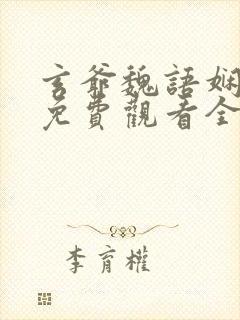 玄爺魏語嫻
免費觀看全
李育權